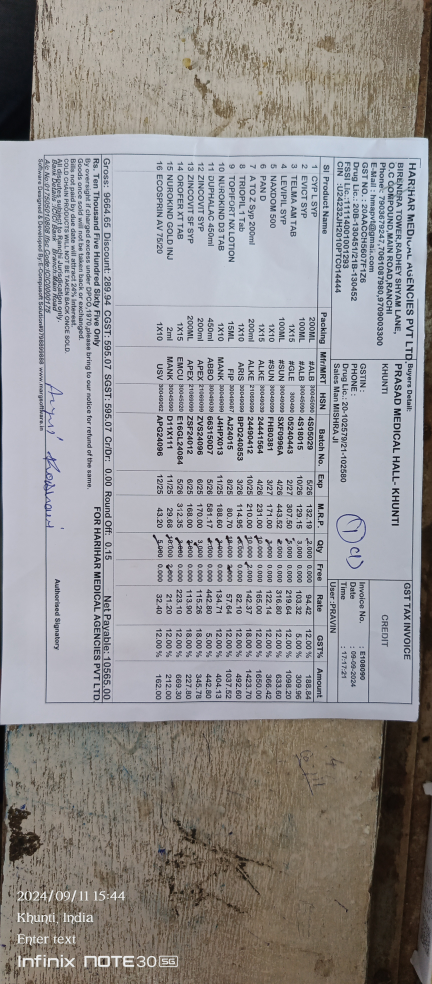 HARIHAR MEDICAL AGENCIES PVT LTD
BIRENDRA TOWER,RADHEY SHYAM LANE,
O.C COMPOUND,MAIN ROAD,RANCHI
Phone: 7903679247,7091087980,9709003300
E-Mail : hmapvl@gmail.com
GST NO : 20AACCH5607F1Z6
Drug Lic: 20B-130451/21B-130452
FSSI Lic :11114001001293
CIN :U24232JH2010PTC014444
Buyers Detail:
PRASAD MEDICAL HALL- KHUNTI
KHUNTI
GSTIN :
PHONE :
Drug Lic.: 20-102579/21-102580
Sales Man MISHRA JI
GST TAX INVOICE
CREDIT
Invoice No. : E108090
Date : 09-09-2024
Time : 17:17:21
User :PRAVIN
Sl Product Name Packing Mfr/MRT HSN Batch No. Exp M.R.P. Qty Free Rate GST% Amount
1 CYP L SYP 200ML #ALB 5/26 132.19 2.000 0.000 94.42 12.00 % 188.84
2 EVICT SYP 100ML #ALB 4S18015 10/26 129.15 3.000 0.000 103.32 5.00 % 309.96
3 TELMA AM TAB 1X15 #GLE 05240443 2/27 307.50 0.000 219.64 12.00 % 1098.20
4 LEVIPIL SYP 100ML #SUN 4/26 443.52 2.000 0.000 316.80 12.00 % 633.60
5 NAXDOM 500 1X10 #SUN FHB0381 3/27 171.00 0.000 122.14 12.00 % 366.42
6 PAN 40 1X15 ALKE 24441564 4/26 231.00 0.000 165.00 12.00 % 1650.00
7 A TO Z Syp 200ml 200ML ALKE 24490412 10/25 210.00 0.000 142.37 18.00 % 1423.70
8 TRIOPIL 1 Tab 1X10 ARIS BPD240853 3/26 114.95 0.000 82.10 12.00 % 492.60
9 TOPIFORT NX LOTION 15ML FIP AJ24015 8/25 80.70 57.64 12.00 % 1037.52
10 NUROKIND D3 TAB 1X10 MANK J4HPX013 11/25 188.60 0.000 134.71 12.00 % 404.13
11 DUPHALAC 450ml 450ml ABBO 663150D7 5/26 581.17 0.000 442.80 5.00 % 442.80
12 ZINCOVIT SYP 200ml APEX ZYS24096 6/25 170.00 3.000 0.000 115.26 18.00 % 345.78
13 ZINCOVIT SF SYP 200ML APEX ZSP24012 6/25 168.00 0.000 113.90 18.00 % 227.80
14 OROFER XT TAB 1X15 EMCU E16GL24084 5/26 312.35 0.000 223.10 12.00 % 669.30
15 NUROKIND GOLD INJ 2ml MANK D11X111 11/25 29.68 21.20 12.00 % 212.00
16 ECOSPRIN AV 75/20 1X10 USV APC24096 12/25 43.20 5.000 0.000 32.40 12.00 % 162.00
Gross: 9664.65 Discount: 289.94 CGST: 595.07 SGST: 595.07 Cr/Dr: 0.00 Round Off: 0.15 Net Payable: 10565.00
Rs. Ten Thousand Five Hundred Sixty Five Only
FOR HARIHAR MEDICAL AGENCIES PVT LTD
By oversight if charged excess under DPCO,1970,please bring to our notice for refund of the same.
Goods once sold will not be taken back or exchanged.
Bills not paid by due date will attract 24% interest.
COLD CHAIN PRODUCTS WILL NOT BE TAKEN BACK ONCE SOLD.
All disputes subject to Ranchi Jurisdiction only.
Authorised Signatory
2024/09/11 15:44
Khunti, India
Enter text
Infinix NOTE 30 5G